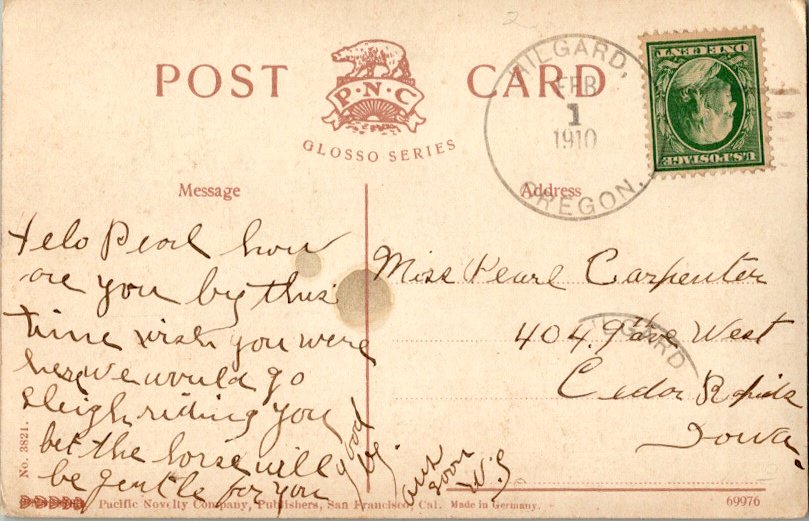 POST CARD
P·N·C
GLOSSO SERIES
HILGARD,
FEB
1
1910
OREGON.
ONE CENT
U.S. POSTAGE
Message
Address
Helo Pearl how
are you by this
time wish you were
here we would go
sleigh riding you
bet the horse will
be gentle for you
good
by
ans
soon
W.S
Miss Pearl Carpenter
404. 9th ave West
Cedar Rapids
Iowa.
HILGARD
No. 3821.
Pacific Novelty Company, Publishers, San Francisco, Cal. Made in Germany.
69976